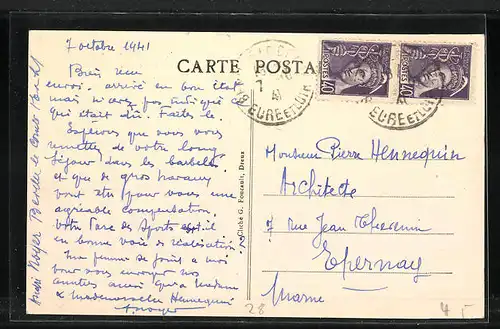 7 octobre 1941
Bien
envoi. arrivé en bon état
mais n'avez pas indiqué ce
qui était dû. Faites le.
Espérons que vous vous
remettez de votre long
séjour dans les barbelés
et que de gros travaux
vont être pour vous une
agréable compensation.
Votre Parc de Sports est-il
en bonne voie de réalisation
Ma femme se joint à moi
pour vous envoyer nos
amitiés ainsi qu'à Madame
& Mademoiselle Hennequin
A. Noyer
André Noyer
Cliché G. Foucault, Dreux
CARTE POSTA
EURE ET LOIR
EURE ET LOIR
POSTES
40
POSTES
40
Monsieur Pierre Hennequin
Architecte
7 rue Jean
Epernay
Marne
28
45